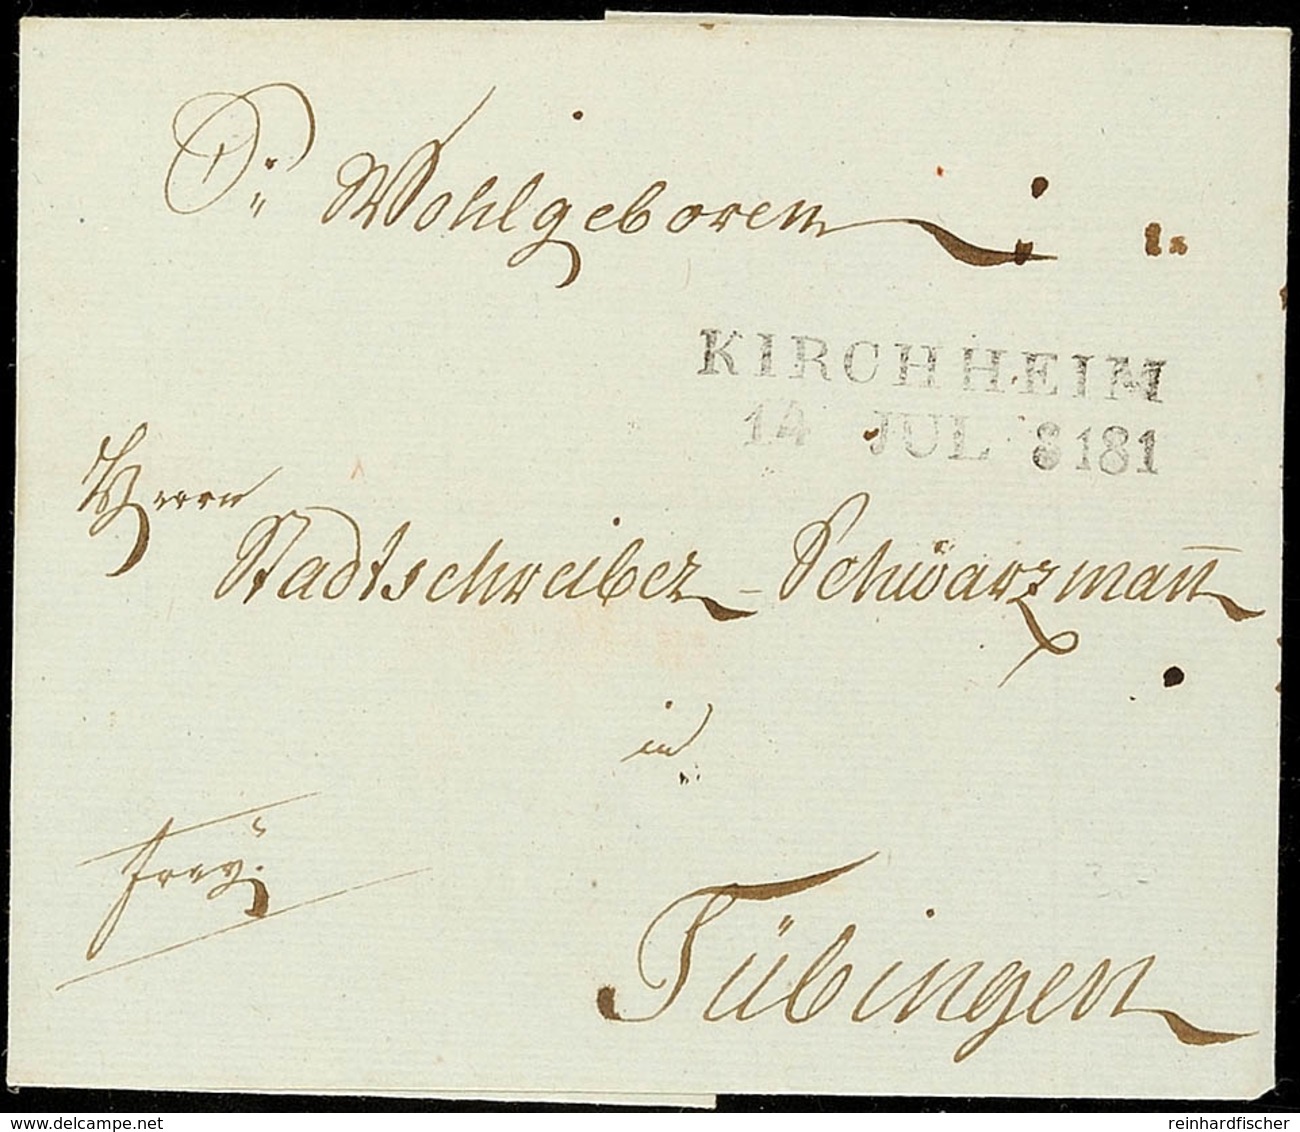 Sr. Wohlgeboren
KIRCHHEIM
14 JUL 8181
Herrn
Stadtschreiber - Schwarzman̅
in
frey.
Tübingen
delcampe.net
reinhardfischer